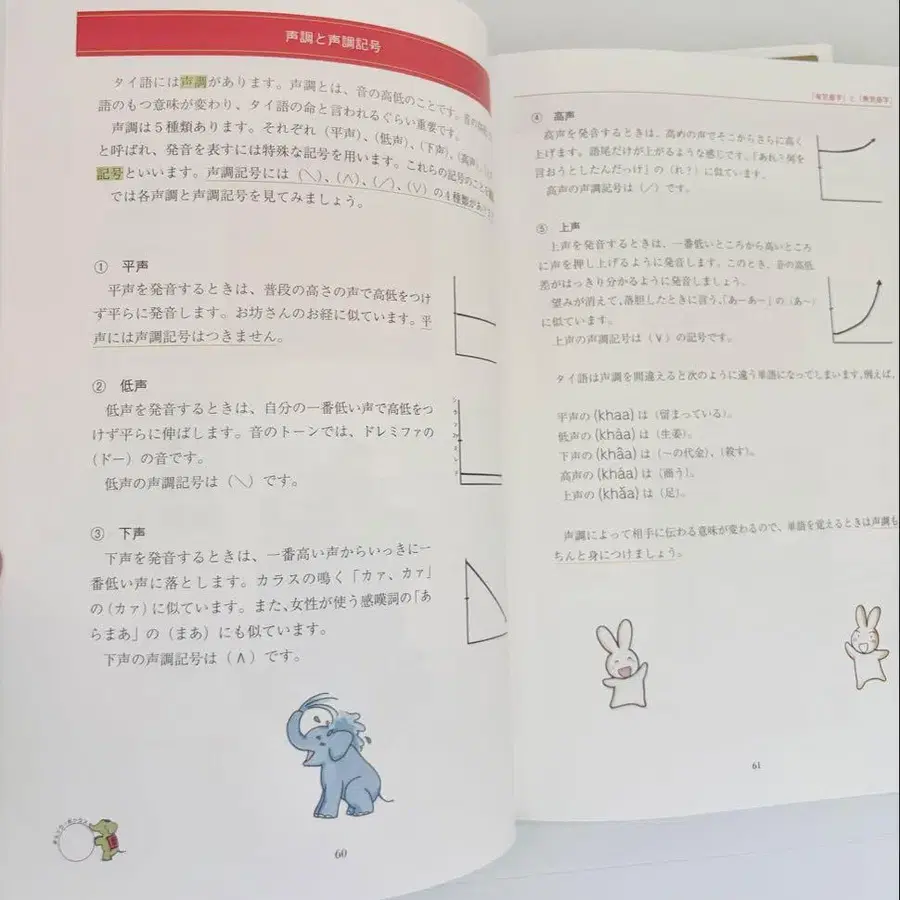 声調と声調記号
タイ語には声調があります。声調とは、音の高低のことです。音の
語のもつ意味が変わり、タイ語の命と言われるぐらい重要です。
声調は5種類あります。それぞれ（平声）、（低声）、（下声）、（高声）、
と呼ばれ、発音を表すには特殊な記号を用います。これらの記号のことを
記号といいます。声調記号には（＼）、（∧）、（／）、（∨）の4種類があ
では各声調と声調記号を見てみましょう。
① 平声
平声を発音するときは、普段の高さの声で高低をつけ
ず平らに発音します。お坊さんのお経に似ています。平
声には声調記号はつきません。
② 低声
低声を発音するときは、自分の一番低い声で高低をつ
けず平らに伸ばします。音のトーンでは、ドレミファの
（ドー）の音です。
低声の声調記号は（＼）です。
③ 下声
下声を発音するときは、一番高い声からいっきに一
番低い声に落とします。カラスの鳴く「カァ、カァ」
の（カァ）に似ています。また、女性が使う感嘆詞の「あ
らまあ」の（まあ）にも似ています。
下声の声調記号は（∧）です。
60
「有気音字」と「無気音字」
④ 高声
高声を発音するときは、高めの声でそこからさらに高く
上げます。語尾だけが上がるような感じです。「あれ？何を
言おうとしたんだっけ」の（れ？）に似ています。
高声の声調記号は（／）です。
⑤ 上声
上声を発音するときは、一番低いところから高いところ
に声を押し上げるように発音します。このとき、音の高低
差がはっきり分かるように発音しましょう。
望みが消えて、落胆したときに言う、「あーあ〜」の（あ〜）
に似ています。
上声の声調記号は（∨）の記号です。
タイ語は声調を間違えると次のように違う単語になってしまいます。例えば、
平声の (khaa) は（留まっている）。
低声の (khàa) は（生姜）。
下声の (khâa) は（〜の代金）、（殺す）。
高声の (kháa) は（商う）。
上声の (khǎa) は（足）。
声調によって相手に伝わる意味が変わるので、単語を覚えるときは声調も
ちんと身につけましょう。
61